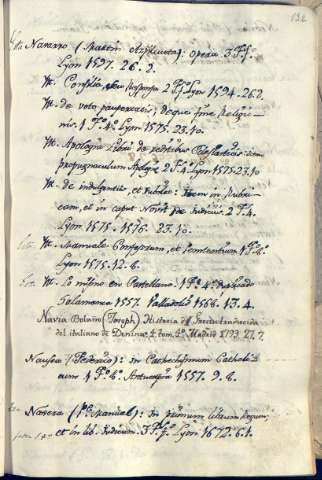 132
Navarro (Martin Azpilcueta): opera 3. Fº
Lyon 1597. 26. 9.
Yt. Consilia, seu Responsa 2 Lyon 1594. 26. 2.
Yt. de voto paupertatis; de qui fine Religio-
nis. 1 Fº 4º Lyon 1575. 23. 10.
Yt. Apologia Libri de reditibus Ecclesiasticis item
propugnaculum Apologie 2 F. 4º Lyon 1575. 23. 10.
Yt. de indulgentiis, et Jubileo: Item in Rubri-
cam, et in caput Novit de Judiciis. 2 F. 4º
Lyon 1575. 1576. 23. 10.
Yt. Manuale Confessorum, et penitentium 1 Fº 8º
Lyon 1575. 12. 8.
Yt. Lo mismo en Castellano. 1 Fº 4º
Salamanca 1557. Valladolid 1566. 13. 4.
Navia Bolaño (Joseph) Historia de traducida
del italiano de Denina. 2 tom. 4º Madrid 1793. 27. 7.
Nausea (Federico): in Catechismum Catholi-
cum 1 Fº 8º Antuerpia 1557. 9. 8.
Naxera (P. Manuel): in primum librum Regum,
et in lib. Judicum. 3 Lyon 1672. 6. 1.